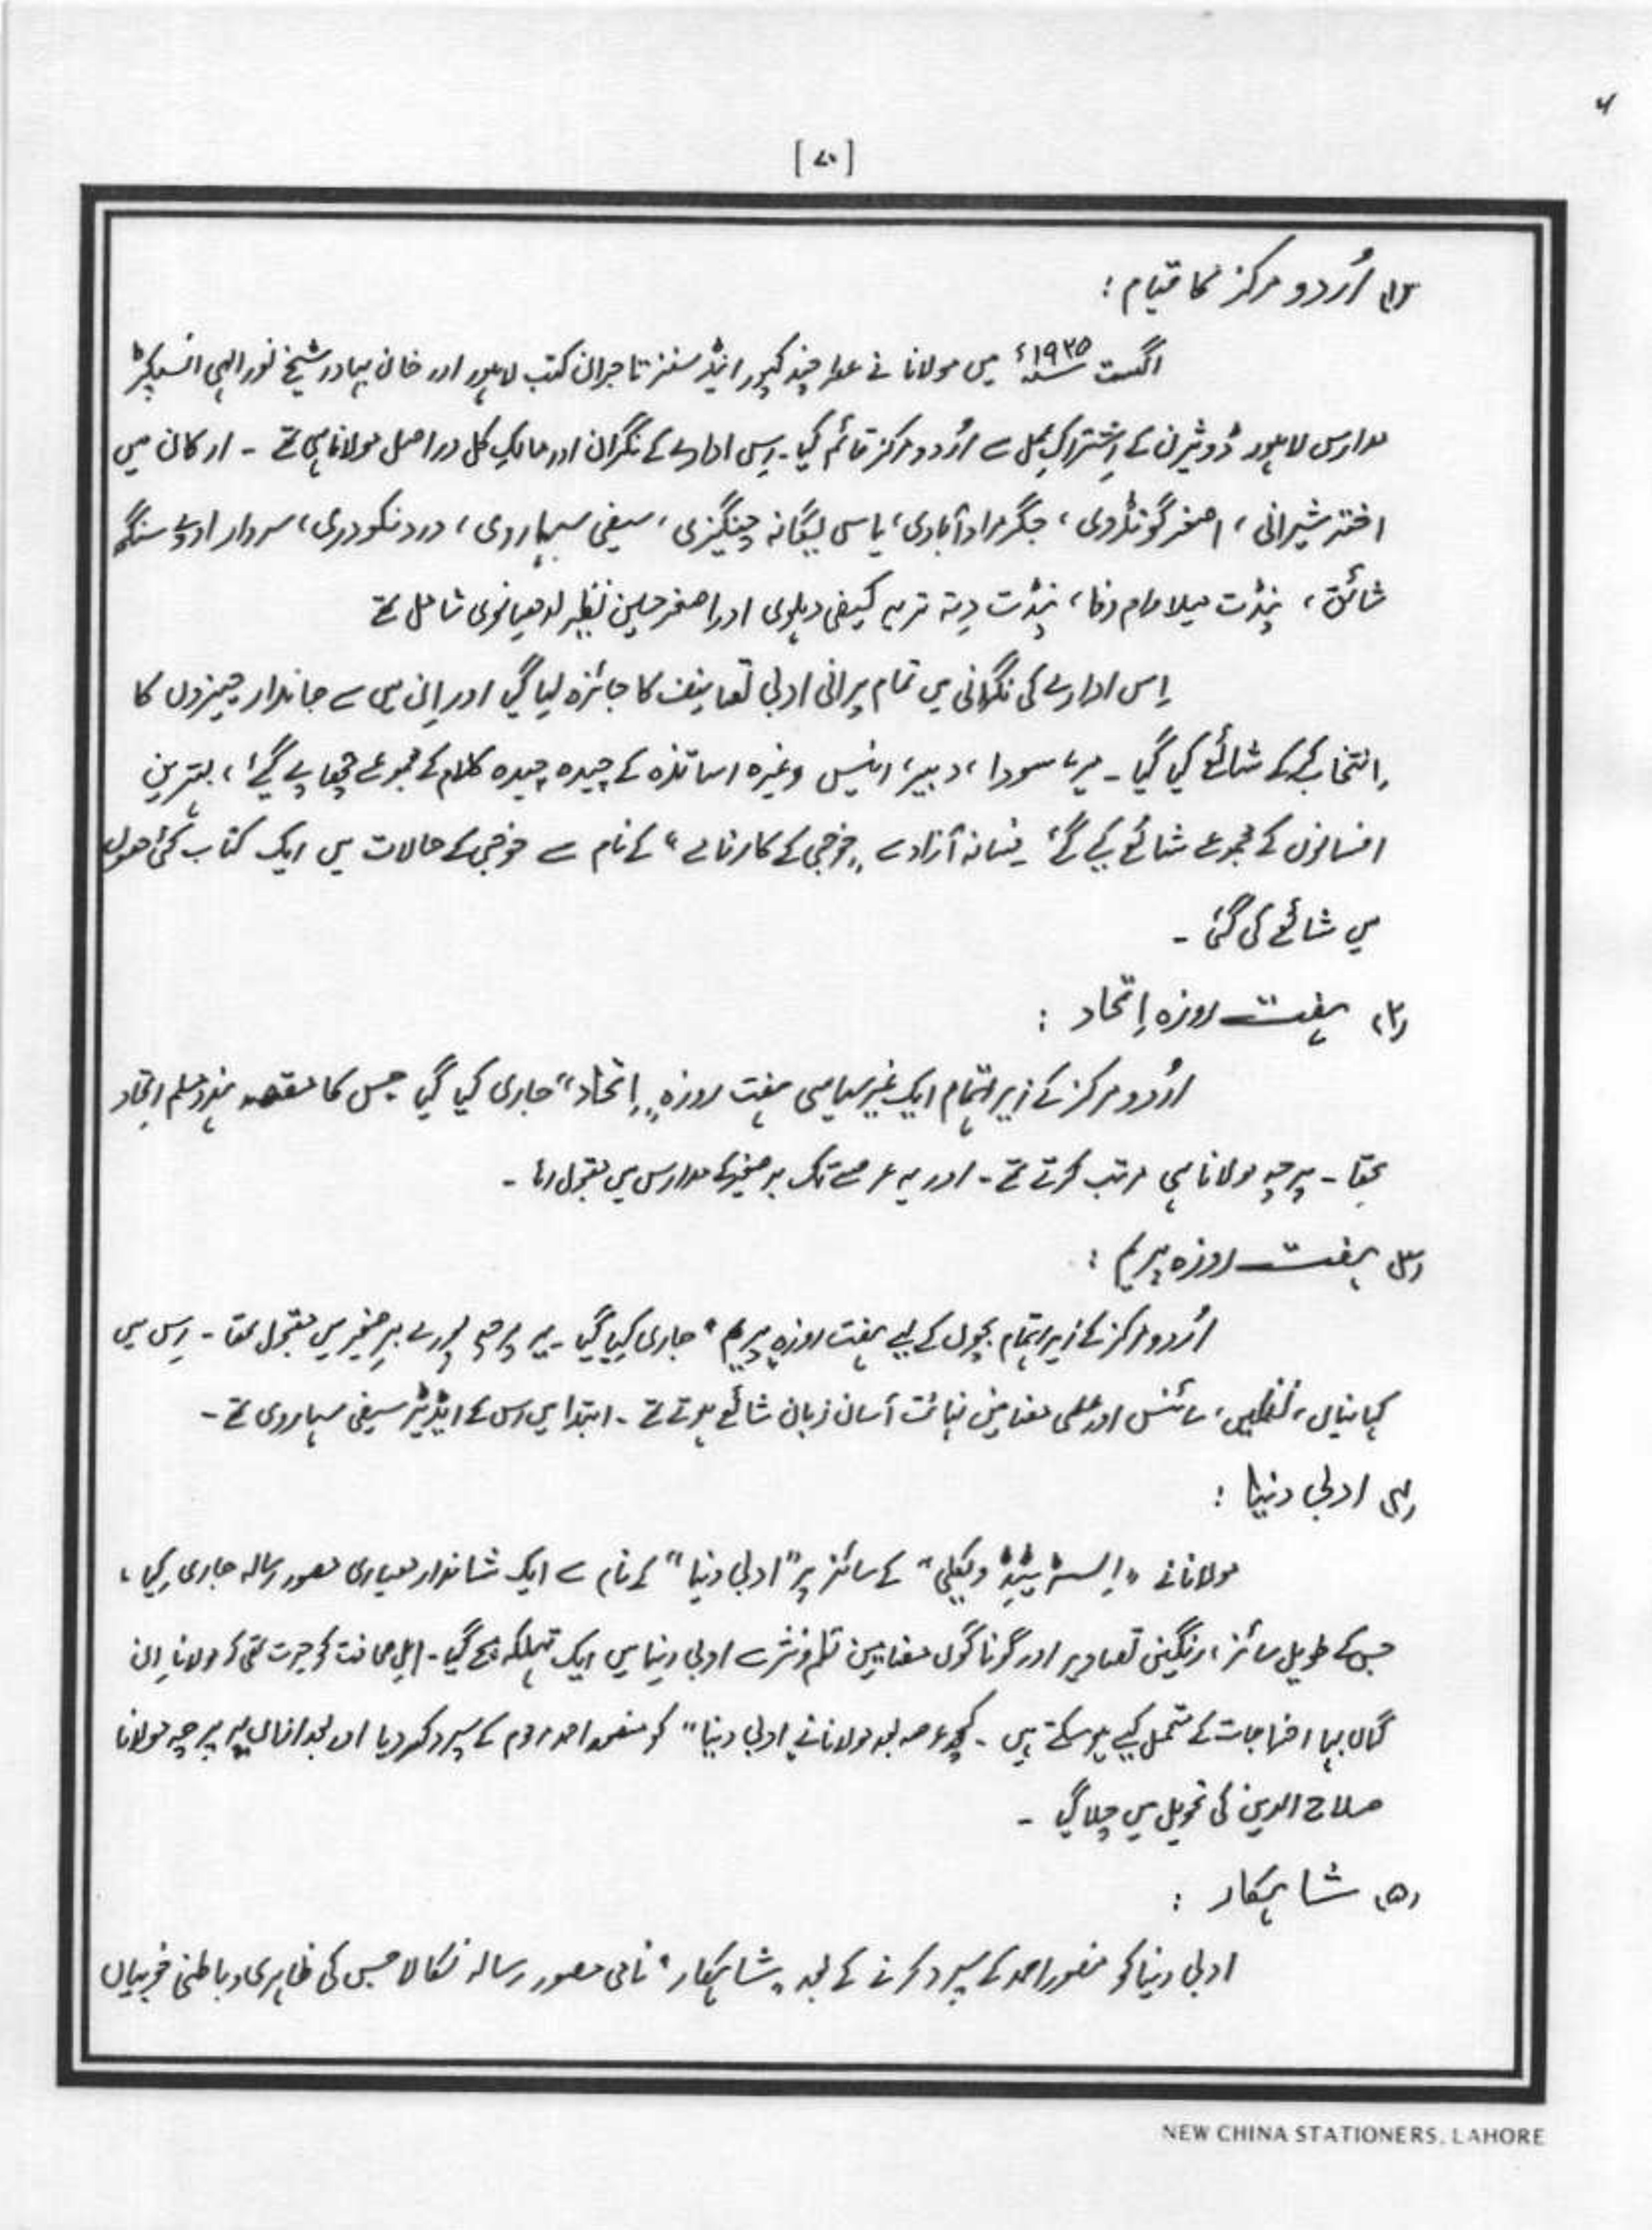 [۷۰]
(۱) اُردو مرکز کا قیام :
اگست ۱۹۲۵ء میں مولانا نے عطر چند کپور اینڈ سنز تاجران کتب لاہور اور خان بہادر شیخ نور الہی انسپکٹر
مدارس لاہور ڈویژن کے اِشتراکِ عمل سے اُردو مرکز قائم کیا ۔ اِس ادارے کے نگران اور مالکِ کل دراصل مولانا ہی تھے ۔ ارکان میں
اختر شیرانی ، اصغر گونڈوی ، جگر مراد آبادی ، یاس یگانہ چنگیزی ، سیفی سہاروی ، درد نکودری ، سردار اودے سنگھ
شائق ، پنڈت میلا رام وفا ، پنڈت دِتہ تریہ کیفی دہلوی اور اصغر حسین نظیر لدھیانوی شامل تھے
اِس ادارے کی نگرانی میں تمام پرانی ادبی تصانیف کا جائزہ لیا گیا اور اِن میں سے جاندار چیزوں کا
اِنتخاب کر کے شائع کیا گیا ۔ میر ، سودا ، دبیر ، انیس وغیرہ اساتذہ کے چیدہ چیدہ کلام کے مجموعے چھاپے گئے ، بہترین
افسانوں کے مجموعے شائع کیے گئے فسانہ آزاد سے " خوجی کے کارنامے " کے نام سے خوجی کے حالات میں ایک کتاب کئی حصوں
میں شائع کی گئی ۔
(۲) ہفت روزہ اِتحاد :
اردو مرکز کے زیر اہتمام ایک غیر سیاسی ہفت روزہ " اِتحاد " جاری کیا گیا جس کا مقصد ہندو مسلم اتحاد
تھا ۔ پرچہ مولانا ہی مرتب کرتے تھے ۔ اور یہ عرصے تک برصغیر کے مدارس میں مقبول رہا ۔
(۳) ہفت روزہ پریم :
اُردو مرکز کے زیر اہتمام بچوں کے لیے ہفت روزہ " پریم " جاری کیا گیا ۔ یہ پرچہ پورے برِصغیر میں مقبول تھا ۔ اِس میں
کہانیاں ، نظمیں ، سائنس اور علمی مضامین نہائت آسان زبان شائع ہوتے تھے ۔ ابتدا میں اس کے ایڈیٹر سیفی سہاروی تھے ۔
(۴) ادبی دنیا :
مولانا نے " اِلسٹریٹیڈ ویکلی " کے سائز پر " ادبی دنیا " کے نام سے ایک شاندار معیاری مصور رسالہ جاری کیا ،
جس کے طویل سائز ، رنگین تصاویر اور گوناگوں مضامین نظم و نثر سے ادبی دنیا میں ایک تہلکہ مچ گیا ۔ اہلِ صحافت کو حیرت تھی کہ مولانا اِن
گراں بہا اخراجات کے متحمل کیسے ہو سکتے ہیں ۔ کچھ عرصہ بعد مولانا نے " ادبی دنیا " کو منصور احمد مرحوم کے سپرد کر دیا اور بعد ازاں یہ پرچہ مولانا
صلاح الدین کی تحویل میں چلا گیا ۔
(۵) شاہکار :
ادبی دنیا کو منصور احمد کے سپرد کرنے کے بعد " شاہکار " نامی مصور رسالہ نکالا جس کی ظاہری و باطنی خوبیاں
NEW CHINA STATIONERS, LAHORE